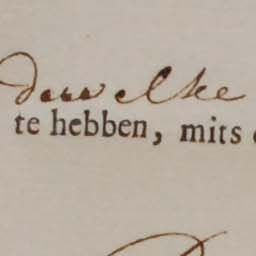 dewelke
te hebben, mits